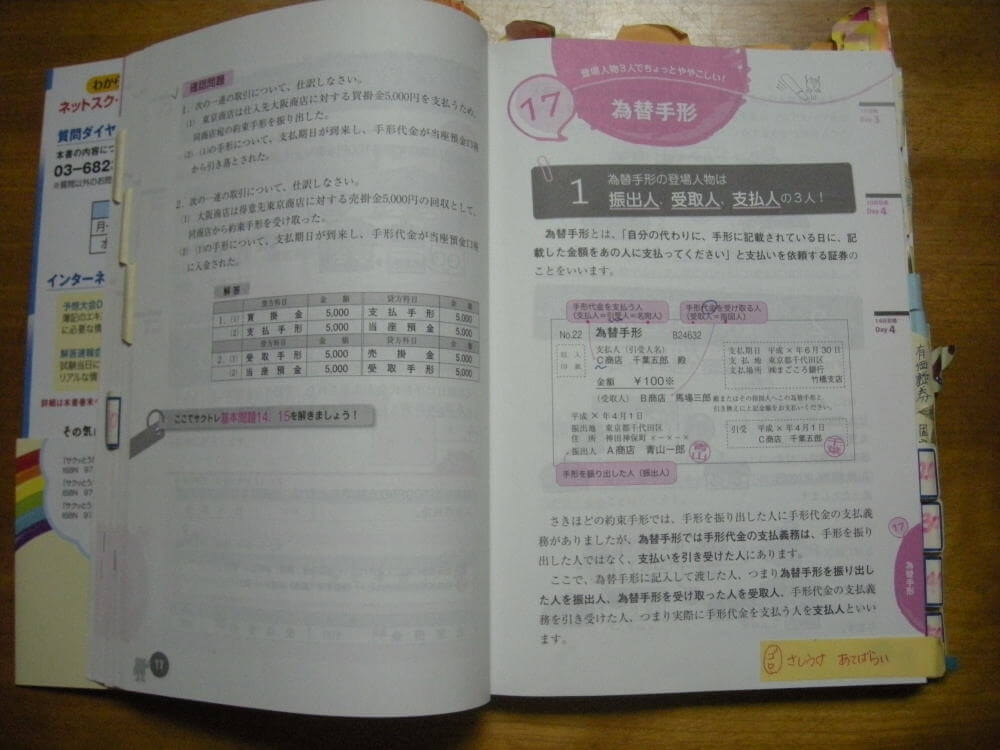 わか
ネットスク
質問ダイヤ
本書の内容につ
03-682
※質問以外のお問
インターネ
予想大会D
簿記のエキ
に必要な情
解答速報会
試験当日に
リアルな情
詳細は本書巻末や
その気
「サクッとう
ISBN 97
「サクッとう
ISBN 97
「サクッとう
ISBN 97
確認問題
1. 次の一連の取引について、仕訳しなさい。
(1) 東京商店は仕入先大阪商店に対する買掛金5,000円を支払うため、
同商店宛の約束手形を振り出した。
(2) (1)の手形について、支払期日が到来し、手形代金が当座預金口座
から引き落とされた。
2. 次の一連の取引について、仕訳しなさい。
(1) 大阪商店は得意先東京商店に対する売掛金5,000円の回収として、
同商店から約束手形を受け取った。
(2) (1)の手形について、支払期日が到来し、手形代金が当座預金口座
に入金された。
解答
借方科目 金額 貸方科目 金額
1. (1) 買掛金 5,000 支払手形 5,000
(2) 支払手形 5,000 当座預金 5,000
2. (1) 受取手形 5,000 売掛金 5,000
(2) 当座預金 5,000 受取手形 5,000
ここでサクトレ基本問題14、15を解きましょう!
登場人物3人でちょっとややこしい!
17 為替手形
1 為替手形の登場人物は
振出人、受取人、支払人の3人!
為替手形とは、「自分の代わりに、手形に記載されている日に、記
載した金額をあの人に支払ってください」と支払いを依頼する証券の
ことをいいます。
手形代金を支払う人
(支払人=引受人=名宛人)
手形代金を受け取る人
(受取人=指図人)
No.22 為替手形 B24632
収入
印紙
支払人(引受人名)
C商店 千葉五郎 殿
金額 ¥100※
支払期日 平成×年6月30日
支払地 東京都千代田区
支払場所 ㈱まごころ銀行
竹橋支店
(受取人) B商店 馬場三郎 殿またはその指図人へこの為替手形と
引き換えに上記金額をお支払いください。
平成×年4月1日
振出地 東京都千代田区
住所 神田神保町×-×-×
振出人 A商店 青山一郎
青山
引受 平成×年4月1日
C商店 千葉五郎
手形を振り出した人(振出人)
さきほどの約束手形では、手形を振り出した人に手形代金の支払義
務がありましたが、為替手形では手形代金の支払義務は、手形を振り
出した人ではなく、支払いを引き受けた人にあります。
ここで、為替手形に記入して渡した人、つまり為替手形を振り出し
た人を振出人、為替手形を受け取った人を受取人、手形代金の支払義
務を引き受けた人、つまり実際に手形代金を支払う人を支払人といい
ます。
Day 3
Day 4
Day 4
17
為替手形
有価証券
ゴロ さしうけ あてばらい